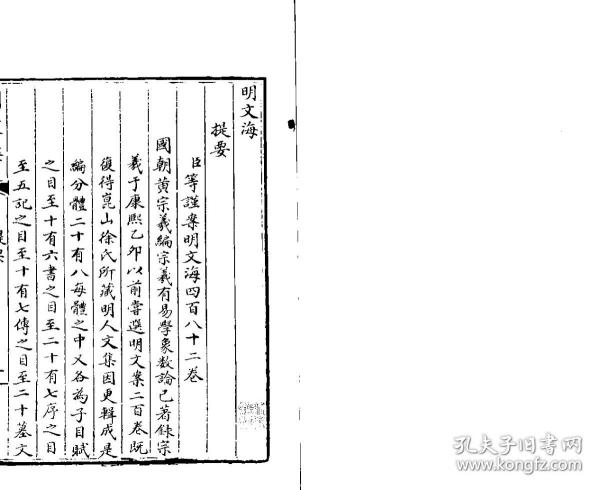 明文海
提要
臣等謹案明文海四百八十二卷
國朝黃宗羲編宗羲有易學象數論已著錄宗
羲于康熙乙卯以前嘗選明文案二百卷既
復得崑山徐氏所藏明人文集因更輯成是
編分體二十有八每體之中又各為子目賦
之目至十有六書之目至二十有七序之目
至五記之目至十有七傳之目至二十墓文
孔夫子旧书网
www.kongfz.com